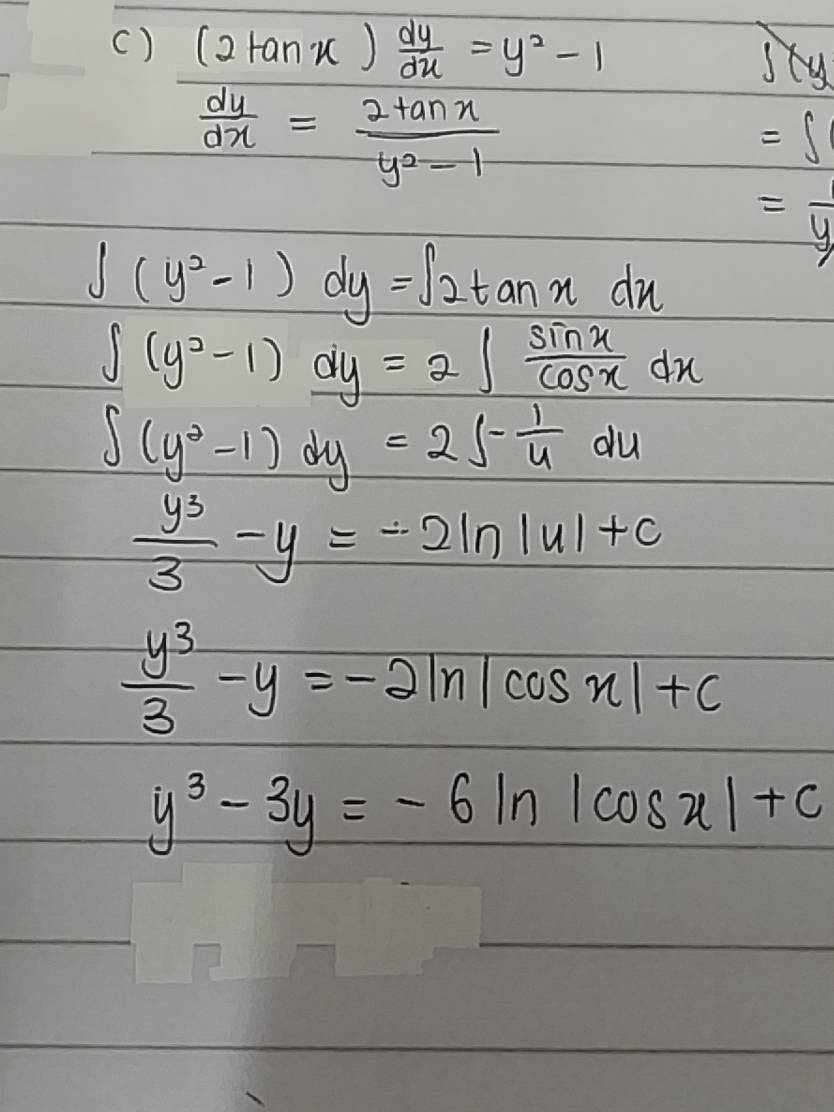 c) (2 tan x) dy/dx = y² - 1
dy/dx = 2 tan x / y² - 1
∫ (y² - 1) dy = ∫ 2 tan x dx
∫ (y² - 1) dy = 2 ∫ sin x / cos x dx
∫ (y² - 1) dy = 2 ∫ - 1/u du
y³/3 - y = -2 ln |u| + c
y³/3 - y = -2 ln |cos x| + c
y³ - 3y = -6 ln |cos x| + c